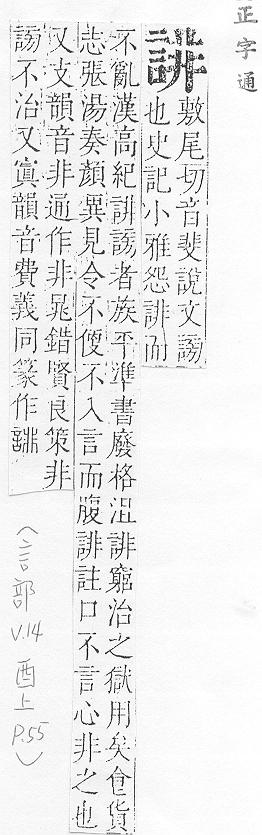 正字通
誹
敷尾切音斐說文謗
也史記小雅怨誹而
不亂漢高紀誹謗者族平準書廢格沮誹窮治之獄用矣食貨
志張湯奏顏異見令不便不入言而腹誹註口不言心非之也
又支韻音非通作非晁錯賢良策非
謗不治又寘韻音費義同篆作誹
(言部
V.14
酉上
P.55)